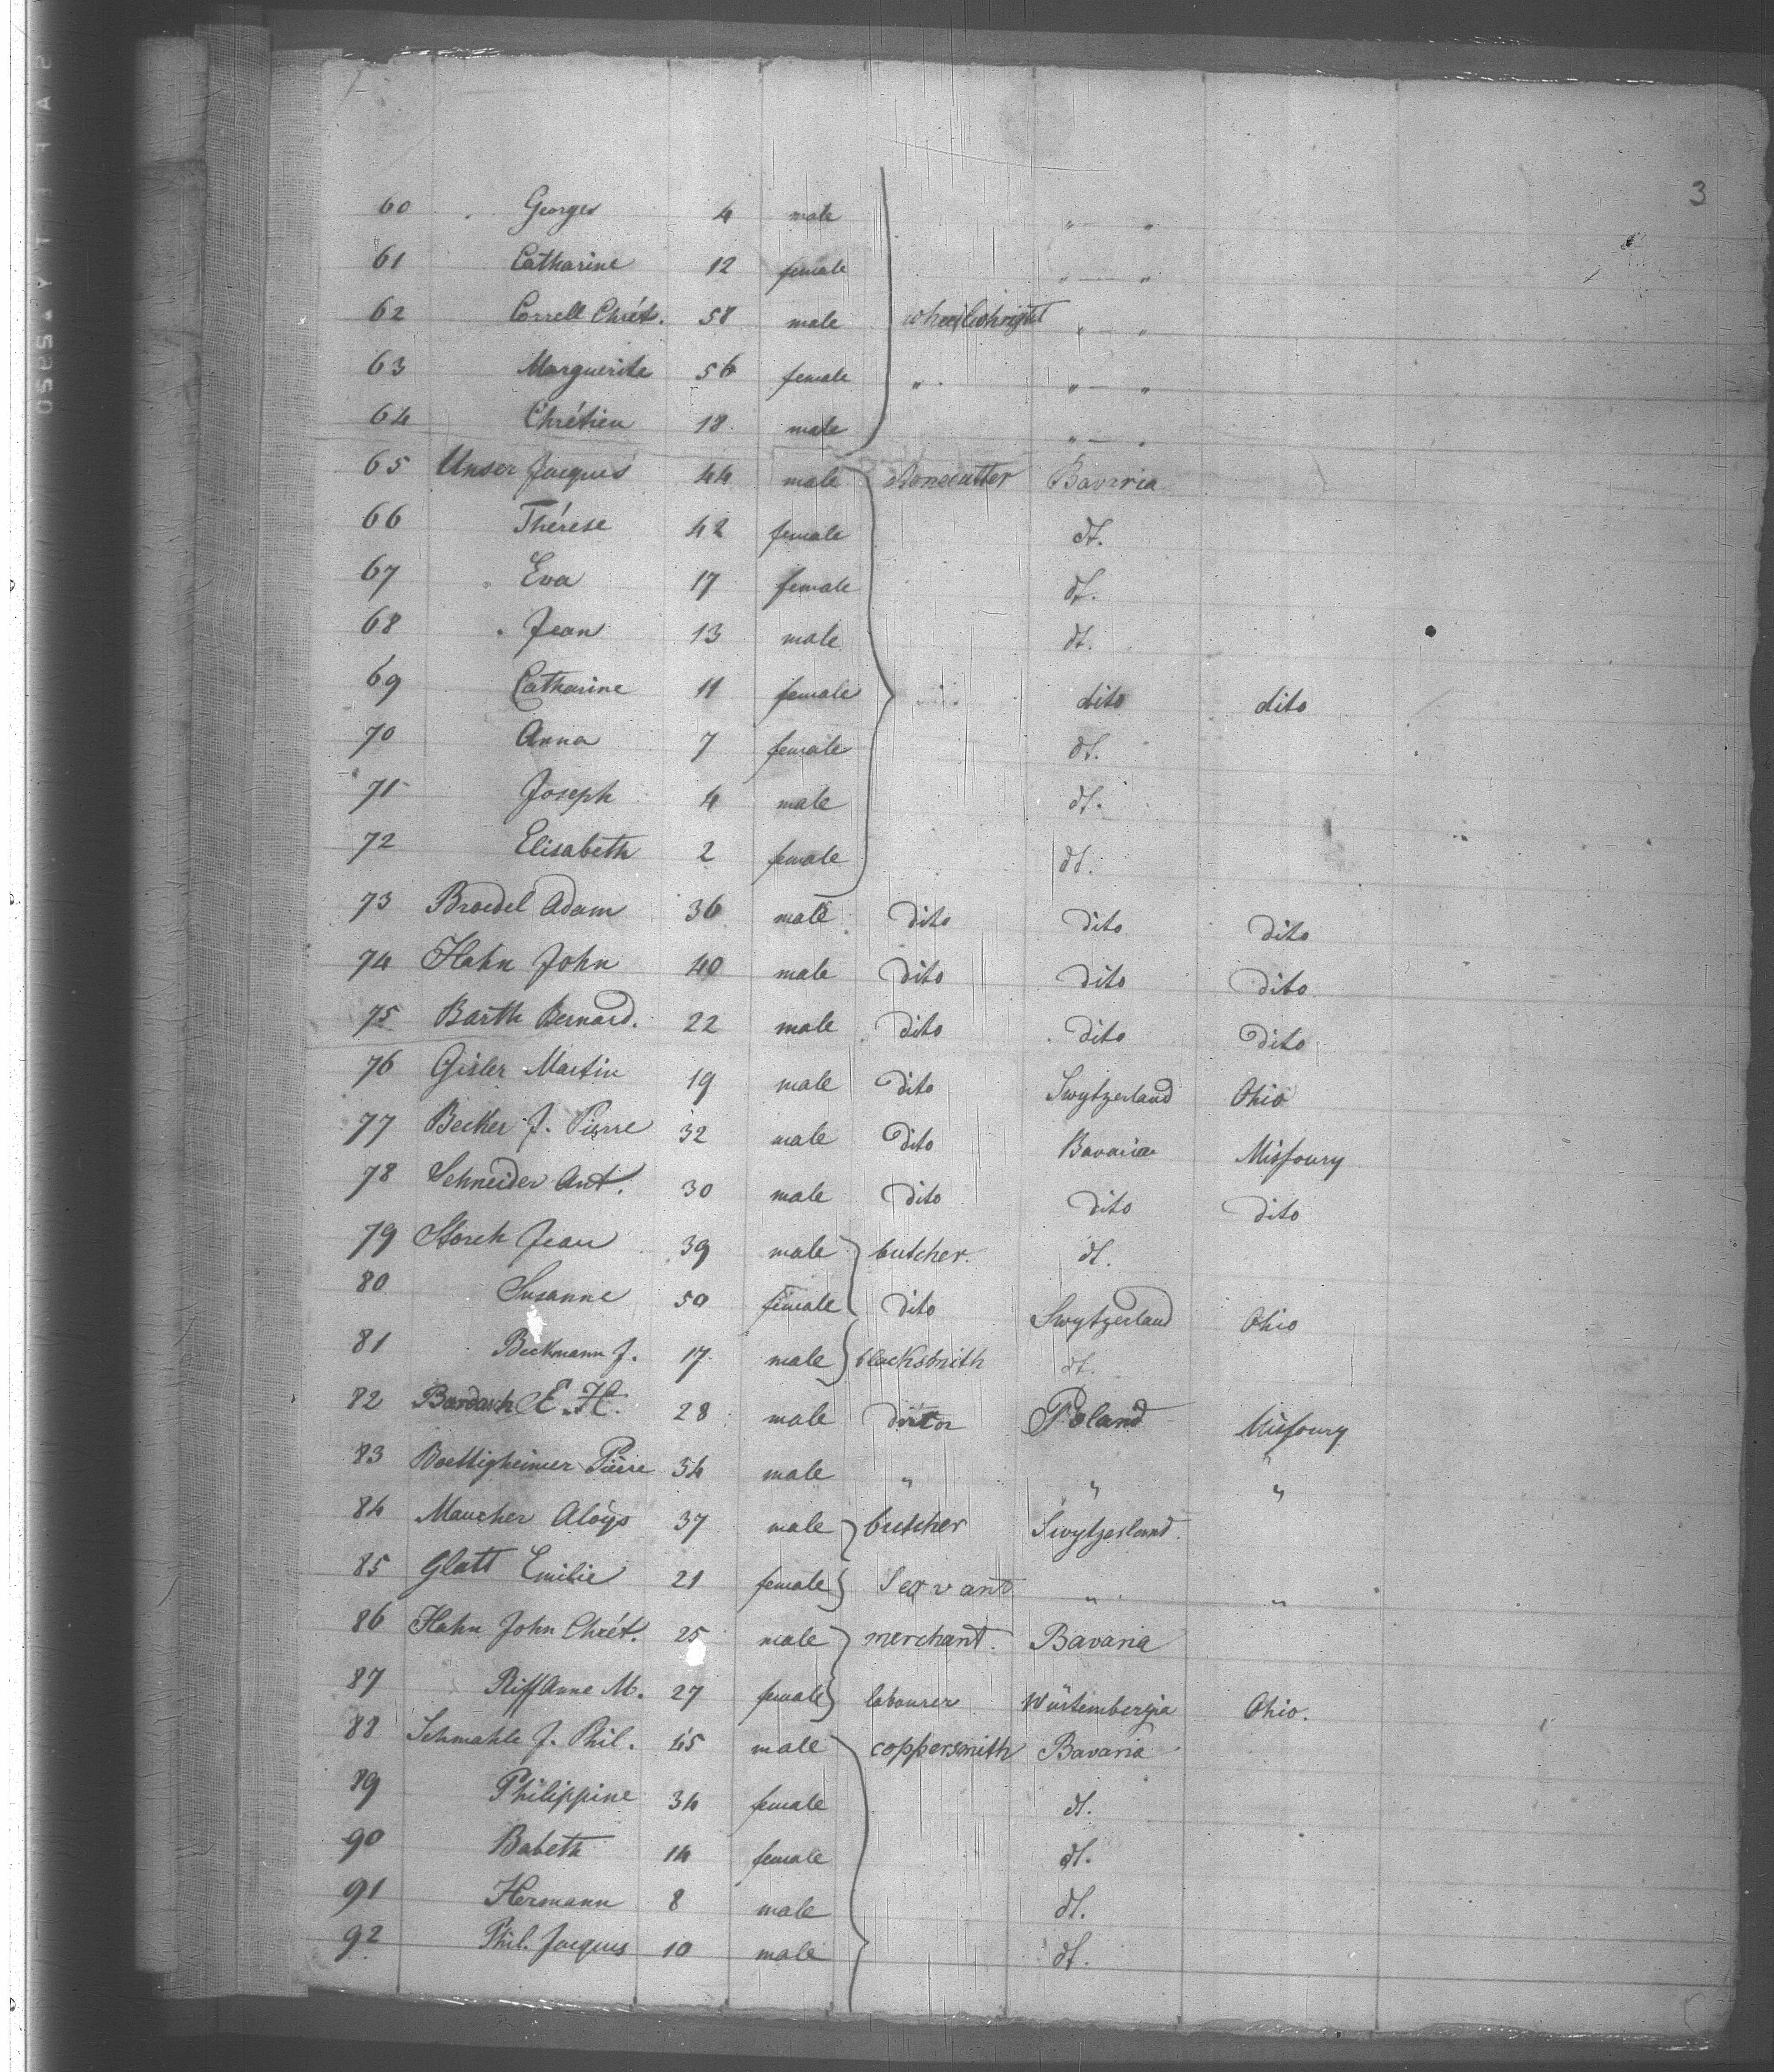 3
60 Georges 4 male " — "
61 Catharine 12 female " — "
62 Correll Chrét. 58 male wheelwhright " — "
63 Marguerite 56 female " " — "
64 Chrétien 18 male " — "
65 Unser Jacques 44 male stonecutter Bavaria
66 Thérese 42 female dt.
67 Eva 17 female dt.
68 Jean 13 male dt.
69 Catharine 11 female dito dito
70 Anna 7 female dt.
71 Joseph 4 male dt.
72 Elisabeth 2 female dt.
73 Broedel Adam 36 male dito dito dito
74 Hahn John 40 male dito dito dito
75 Barth Bernard. 22 male dito dito dito
76 Gisler Martin 19 male dito Swytzerland Ohio
77 Becker J. Pierre 32 male dito Bavaria Missoury
78 Schneider Ant. 30 male dito dito dito
79 Storck Jean 39 male butcher. dt.
80 Susanne 50 female dito Swytzerland Ohio
81 Beckmann J. 17 male blacksmith dt.
82 Bardasch E. H. 28 male Poland Missoury
83 Boettigheimer Pierre 34 male " " "
84 Maucher Aloÿs 37 male butcher Swytzerland
85 Glatt Emilie 21 female Servant " "
86 Hahn John Chrét. 25 male merchant. Bavaria
87 Riff Anne M. 27 female labourer Würtembergia Ohio.
88 Schmahle J. Phil. 45 male coppersmith Bavaria
89 Philippine 34 female dt.
90 Babeth 14 female dt.
91 Hermann 8 male dt.
92 Phil. Jacques 10 male dt.